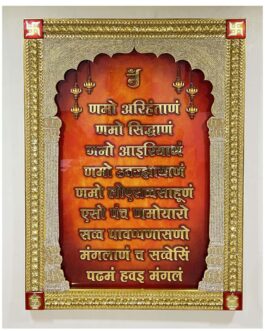 णमो अरिहंताणं
णमो सिद्धाणं
णमो आइरियाणं
णमो उवज्झायाणं
णमो लोएसव्वसाहूणं
एसो पंच णमोयारो
सव्व पावप्पणासणो
मंगलाणं च सव्वेसिं
पढमं हवइ मंगलं